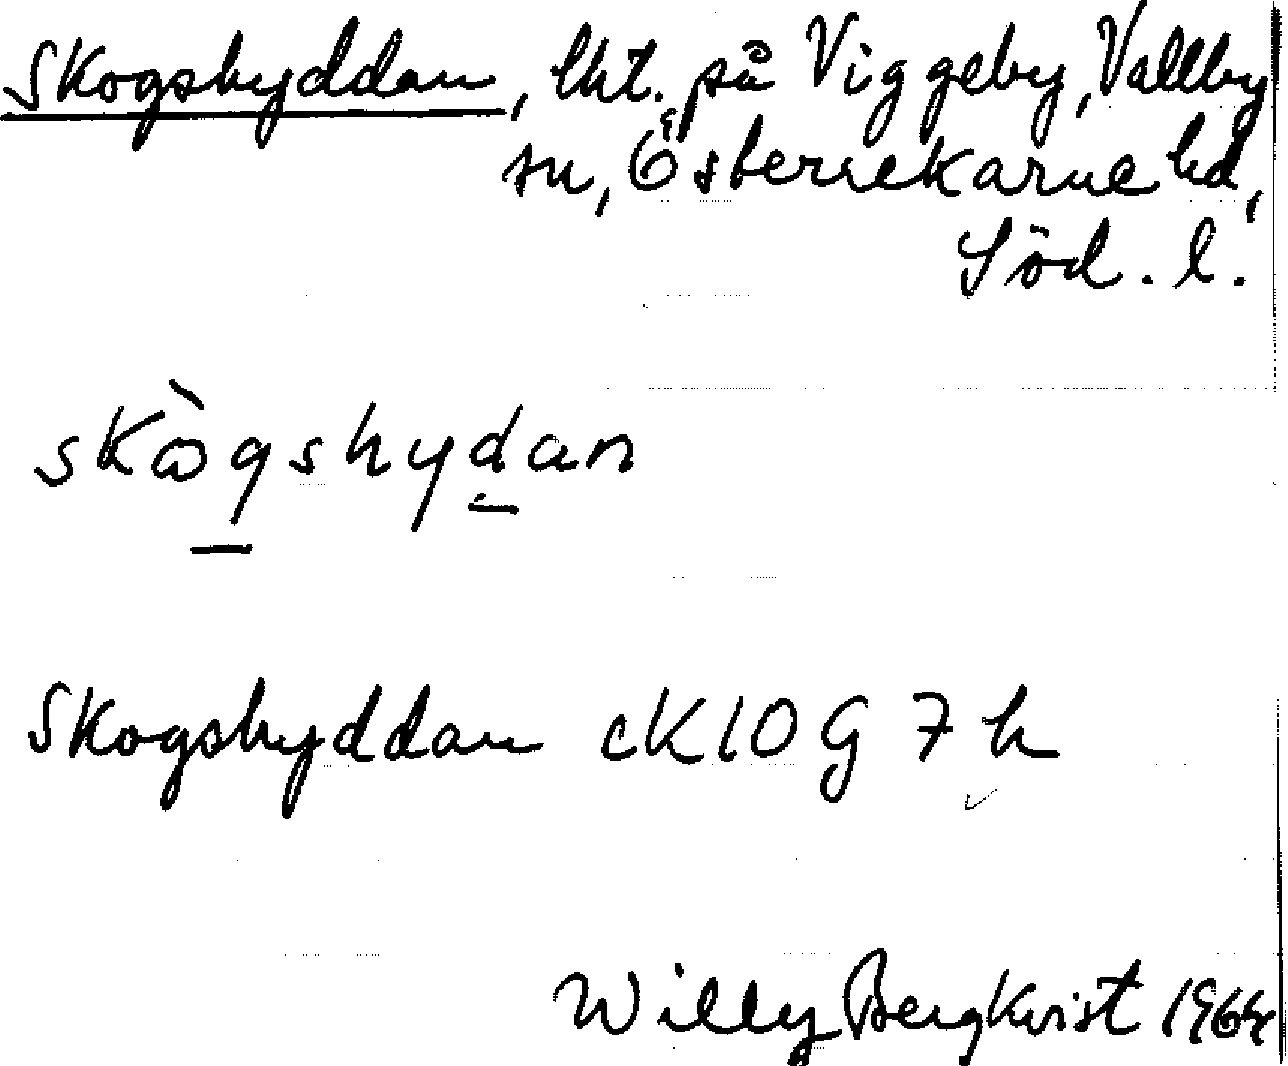 Skogshyddan, lht. på Viggeby, Vallby
sn, Österrekarne hd,
Söd. l.
skògshydan
Skogshyddan eK 10 G 7 h
Willy Bergkvist 1964